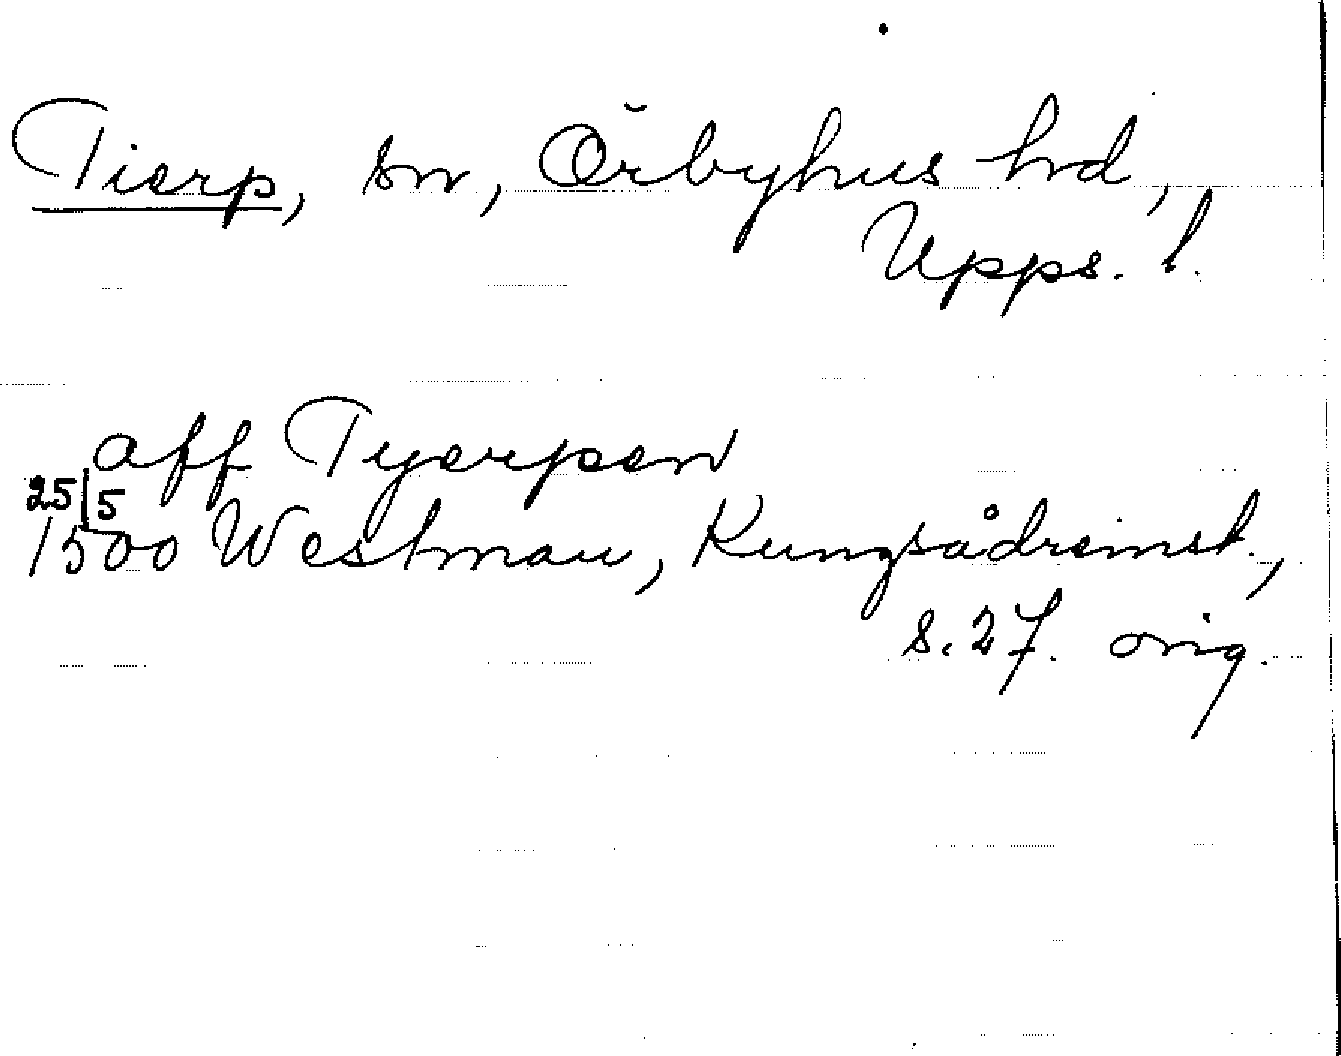 Tierp, sn, Örbyhus hd,
Upps. l.
aff Tyerpen
25/5
1500 Westman, Kungsådreinst.,
s. 27. orig.